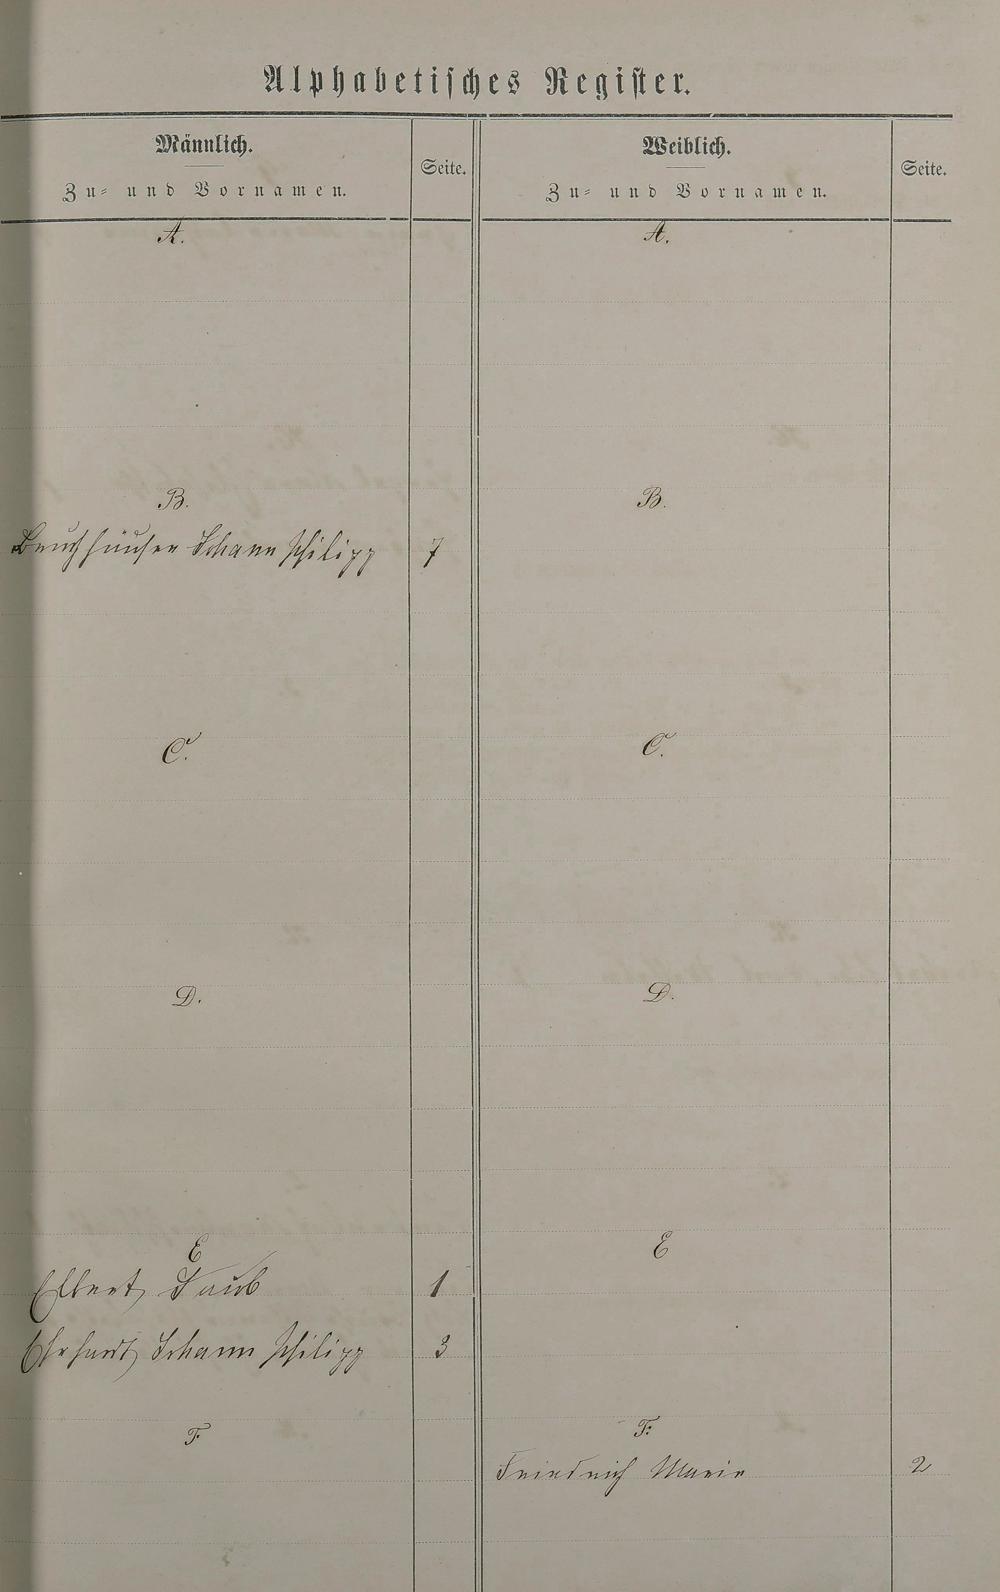 Alphabetisches Register.
Männlich.
Zu- und Vornamen.
Seite.
Weiblich.
Zu- und Vornamen.
Seite.
A.
A.
B.
B.
Bruchhäuser Johann Philipp 7
C.
C.
D.
D.
E
E
Elbert, Jakob 1
Ehrhardt, Johann Philipp 3
F
F.
Friedrich Marie 2